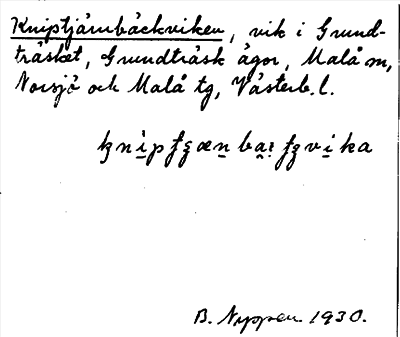 Kniptjärnbäckviken, vik i Grund-
träsket, Grundträsk ägor, Malå sn,
Norsjö och Malå tg, Västerb. l.
B. Nyppen 1930.